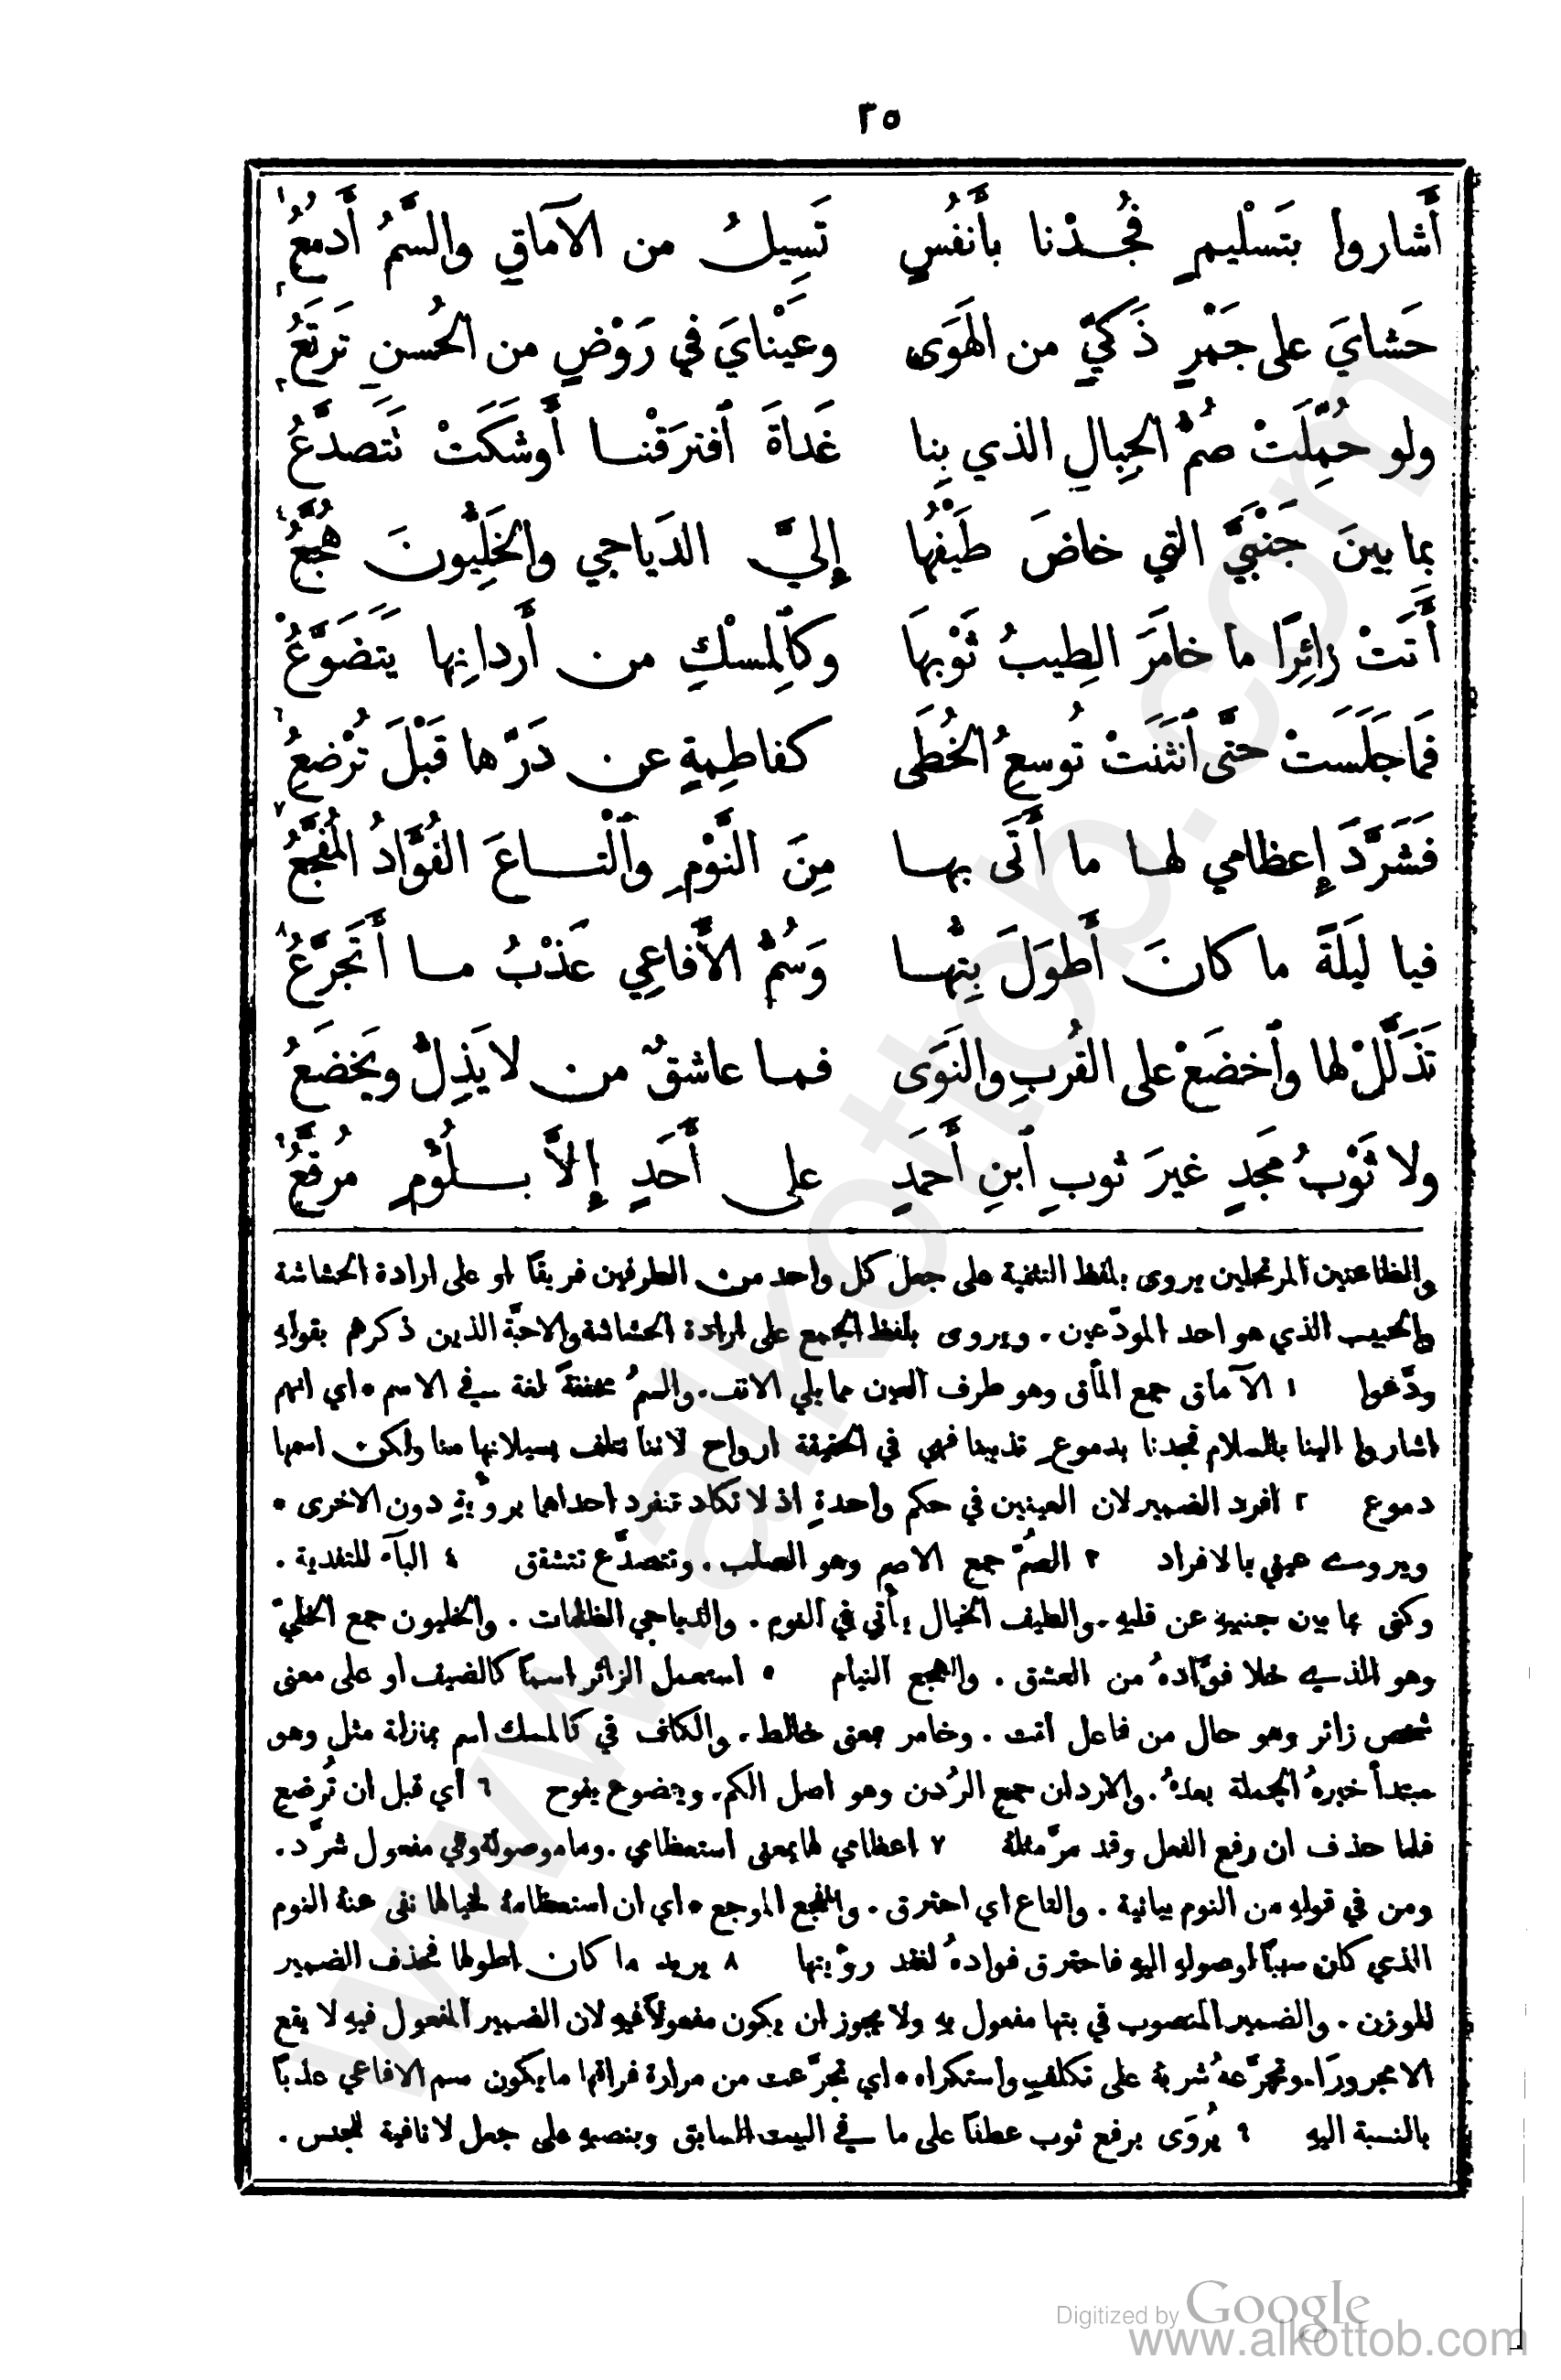 ٢٥
أَشاروا بتَسْليمٍ فجُدْنا بأَنفُسٍ تَسِيلُ من الآماقِ والسَّمُ أَدمُعُ ١
حَشايَ على جَمْرٍ ذَكيٍّ من الهَوَى وعَيْنايَ في رَوْضٍ من الحُسنِ تَرتَعُ ٢
ولو حُمِّلَتْ صُمُّ الجِبالِ الذي بِنا غَداةَ ٱفترَقْنا أَوشَكَتْ تَتَصدَّعُ ٣
بِما بينَ جَنْبَيَّ التي خاضَ طَيْفُها إِليَّ الدَياجي والخَلِيُّونَ هُجَّعُ ٤
أَتَتْ زائِرًا ما خامَرَ الطِيبُ ثَوْبَها وكٱلمِسْكِ من أَردانِها يَتَضَوَّعُ ٥
فَما جَلَسَتْ حتَّى ٱنثَنَتْ تُوسعُ الخُطَى كفاطِمةٍ عن دَرِّها قَبْلَ تُرْضعُ ٦
فَشَرَّدَ إِعظامي لها ما أَتَى بها مِنَ النَّوْمِ وٱلْتاعَ الفُؤَادُ المُفجَّعُ ٧
فيا لَيلَةً ما كانَ أَطوَلَ بِتُّها وَسُمُّ الأَفاعِي عَذْبُ ما أَتَجَرَّعُ ٨
تَذَلَّلْ لها وٱخضَعْ على القُربِ والنَوَى فما عاشقٌ من لا يَذِلُّ ويَخضَعُ
ولا ثَوْبُ مَجدٍ غيرَ ثوبِ ٱبنِ أَحمَدٍ على أَحَدٍ إِلاَّ بلُؤْمٍ مُرقَّعُ ٩
والظاعنين المرتحلين يروى بلفظ التثنية على جعل كل واحد من الطرفين فريقًا او على ارادة الحشاشة
والحبيب الذي هو احد المودّعين . ويروى بلفظ الجمع على ارادة الحشاشة والاحبَّة الذين ذكرهم بقولهِ
ودَّعوا ١ الآماق جمع المأق وهو طرف العين مما يلي الانف . والسمُ مخففةً لغة في الاسم ٠ اي انهم
اشاروا الينا بالسلام فجدنا بدموعٍ تذيبنا فهي في الحقيقة ارواح لاننا نتلف بسيلانها منا ولكن اسمها
دموع ٢ افرد الضمير لان العينين في حكم واحدةٍ اذ لا تكاد تنفرد احداهما برؤيةٍ دون الاخرى ٠
ويروى عيني بالافراد ٣ الصُمّ جمع الاصم وهو الصلب . وتتصدَّع تتشقق ٤ البآء للتفدية .
وكنى بما بين جنبيهِ عن قلبهِ . والطيف الخيال يأتي في النوم . والدياجي الظلمات . والخليون جمع الخليّ
وهو الذي خلا فؤَادهُ من العشق . والهجع النيام ٥ استعمل الزائر اسمًا كالضيف او على معنى
شخص زائر وهو حال من فاعل اتت . وخامر بمعنى خالط . والكاف في كالمسك اسم بمنزلة مثل وهو
مبتدأ خبرهُ الجملة بعدهُ . والاردان جمع الرُدن وهو اصل الكم . ويتضوع يفوح ٦ اي قبل ان تُرضع
فلما حذف ان رفع الفعل وقد مرَّ مثلهُ ٧ اعظامي لها بمعنى استعظامي . وما موصولة وهي مفعول شرَّد .
ومن في قولهِ من النوم بيانية . والتاع اي احترق . والمفجع الموجع ٠ اي ان استعظامهُ لخيالها نفى عنهُ النوم
الذي كان سببًا لوصولهِ اليهِ فاحترق فوادهُ لفقد رؤيتها ٨ يريد ما كان اطولها فحذف الضمير
للوزن . والضمير المنصوب في بتها مفعول بهِ ولا يجوز ان يكون مفعولاً فيهِ لان الضمير المفعول فيهِ لا يقع
الا مجرورًا . وتجرَّعهُ شربهُ على تكلفٍ واستكراه ٠ اي تجرَّعت من مرارة فراقها ما يكون سم الافاعي عذبًا
بالنسبة اليهِ ٩ يُروَى برفع ثوب عطفًا على ما في البيت السابق وبنصبهِ على جعل لا نافية للجنس .
Digitized by Google
www.alkottob.com